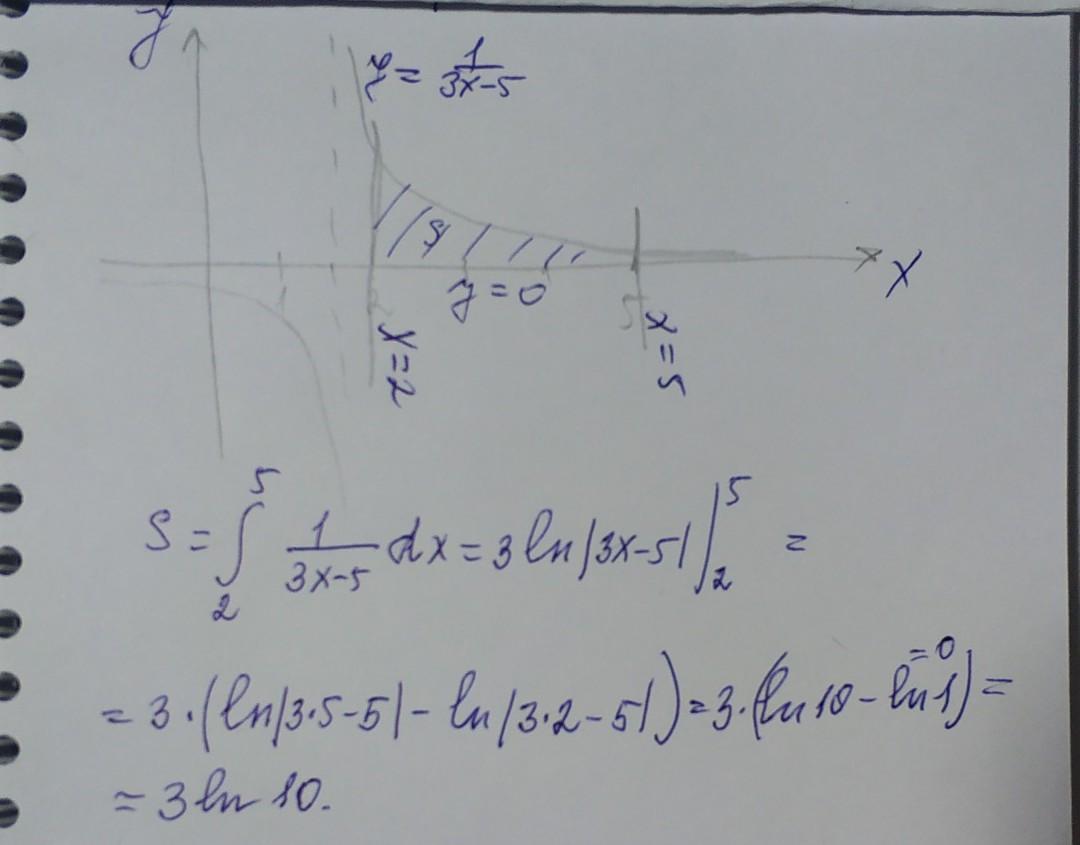 y
y = 1/(3x-5)
S
1
2
y = 0
5
x
x=2
x=5
S = ∫₂⁵ 1/(3x-5) dx = 3 ln|3x-5| |₂⁵ =
= 3·(ln|3·5-5| - ln|3·2-5|) = 3·(ln 10 - ln 1) =
= 0
= 3 ln 10.